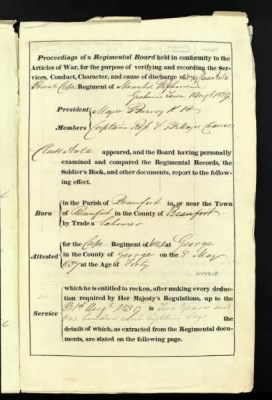 Proceedings of a Regimental Board held in conformity to the
Articles of War, for the purpose of verifying and recording the Ser-
vices, Conduct, Character, and cause of discharge of
Regiment of Mounted Riflemen
Graham's Town
President Major
Members Captain Ross & Bt Major
appeared, and the Board having personally
examined and compared the Regimental Records, the
Soldier's Book, and other documents, report to the follow-
ing effect.
Born
in the Parish of Beaufort in, or near the Town
of Beaufort in the County of Beaufort
by Trade a Labourer
Attested
for the Cape Regiment at George
in the County of George on the 8 May
at the Age of Forty
which he is entitled to reckon, after making every deduc-
tion required by Her Majesty's Regulations, up to the
Service
31st Augt 1839 is Two Years and
days the
details of which, as extracted from the Regimental docum-
ents, are stated on the following page.